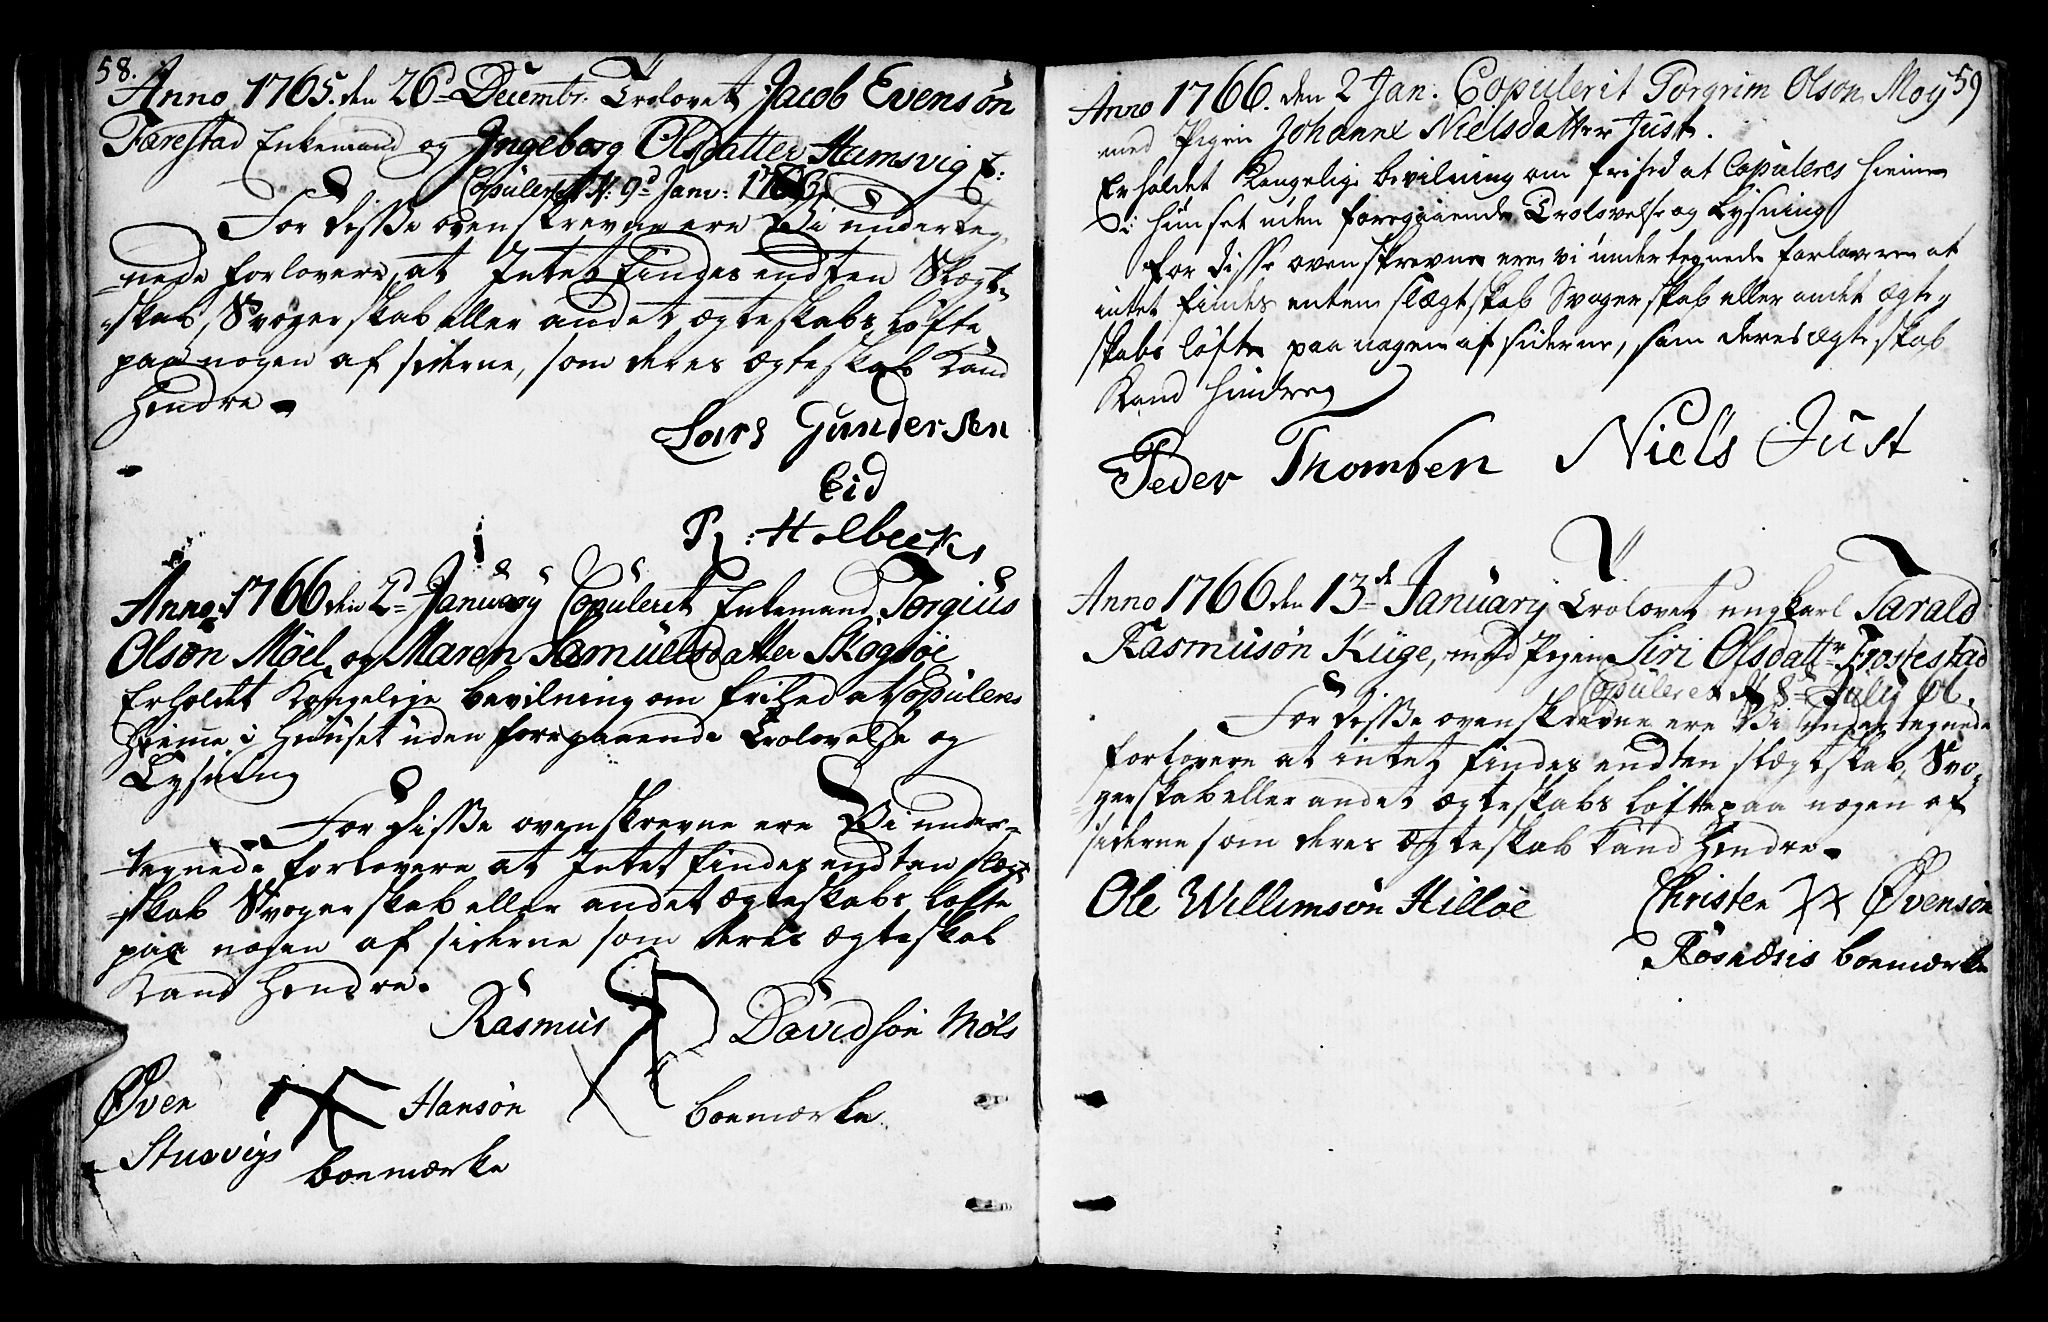 58.
Anno 1765. den 26d Decembr. Trolovet Jacob Evensøn
Færestad Enkemand og Ingeborg Olsdatter Humsvig E:
Copuleret d: 9d Janv: 1766
For disse ovenskrevne ere Vi underteg
nede forlovere, at Intet findes endten Slægt-
skab, Svogerskab eller andet ægteskabs løfte
paa nogen af siderne, som deres ægteskab kand
hindre.
Lars Gundersen
Eid
P: Holbeck
Anno 1766 den 2d January Copuleret Enkemand Torgius
Olsøn Møel og Maren Samuelsdatter Skogsøe
Erholdet Kongelige bevilning om frihed at Copuleres
hieme i Huuset uden foregaaende Trolovelse og
Lysning
For disse ovenskrevne ere Vi under-
tegnede forlovere at Intet findes endten slægt-
skab Svogerskab eller andet ægteskabs løfte
paa nogen af siderne som deres ægteskab
kand hindre.
Rasmus Davidsøn Møls
boemærke
Øven Hansøn
Stusvigs
boemærke
59
Anno 1766. den 2 Jan. Copulerit Torgrim Olson Moy
med Pigen Johanne Nielsdatter Just.
Erholdet Kongelige bevilning om frihed at Copuleres hieme
i huuset uden foregaaende Trolovelse og Lysning
for disse ovenskrevne ere vi undertegnede forlovere at
intet findes enten slægtskab Svogerskab eller andet ægte
skabs løfte paa nogen af siderne, som deres ægteskab
kand hindre
Peder Thomsen Niels Just
Anno 1766 den 13de January Trolovet ungkarl Tarald
Rasmusøn Kuge, med Pigen Siri Olsdattr Frostestad
Copuleret d 8de July
For disse ovenskrevne ere Vi undertegnede
forlovere at intet findes endten slægtskab, Svo-
gerskab eller andet ægteskabs løfte paa nogen af
siderne som deres ægteskab kand hindre.
Ole Willumsøn Hilløe Christen Øvensøn
Rosnæsis boemærke